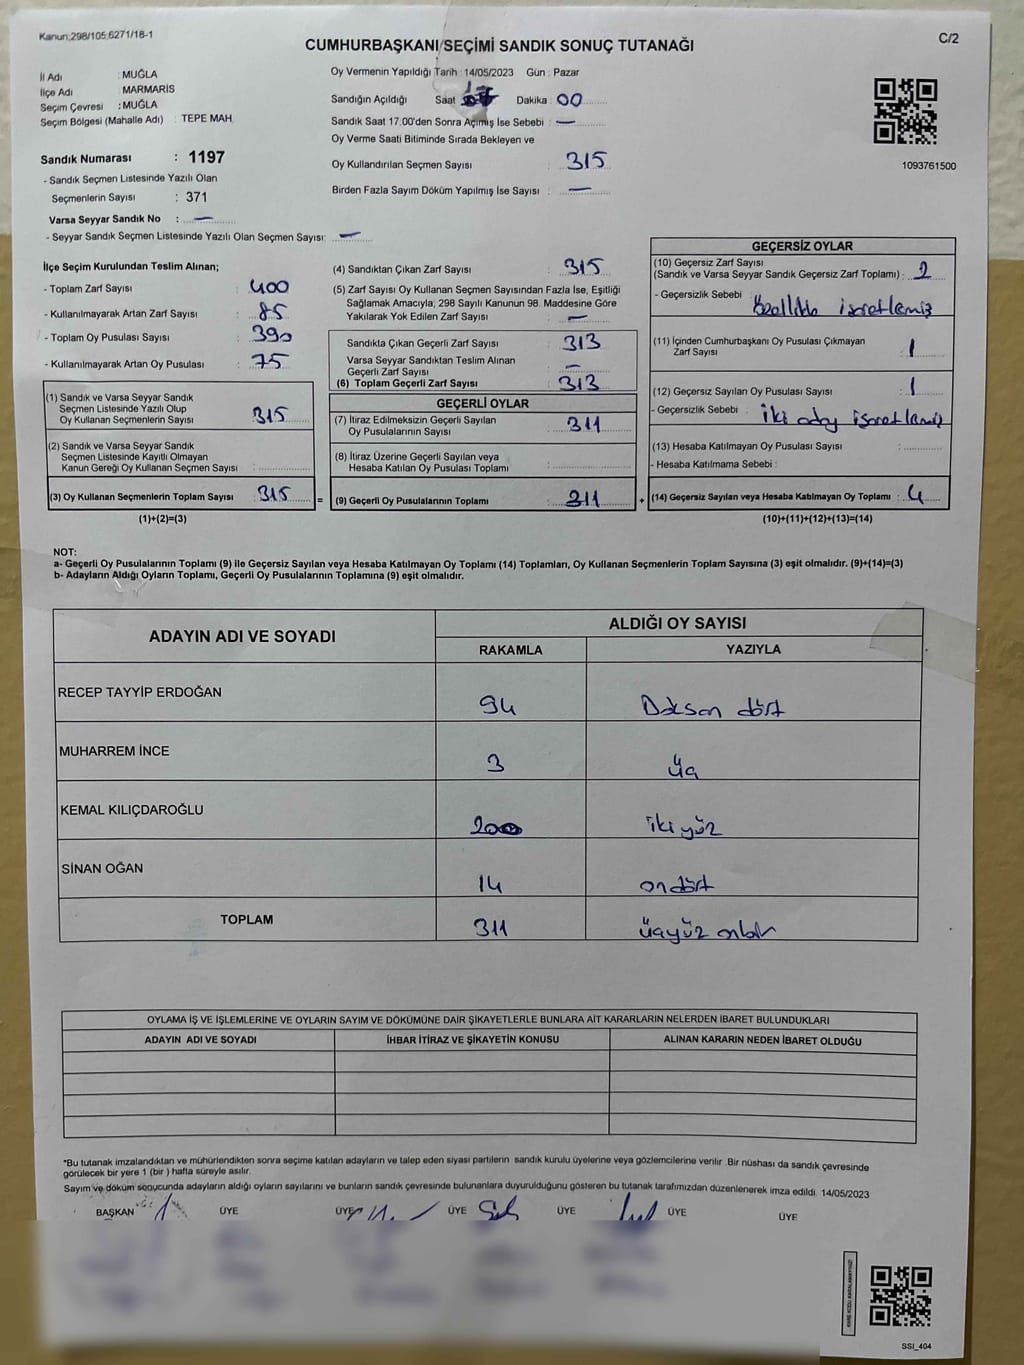 Kanun:298/105,6271/18-1
C/2
CUMHURBAŞKANI SEÇİMİ SANDIK SONUÇ TUTANAĞI
İl Adı : MUĞLA
İlçe Adı : MARMARİS
Seçim Çevresi : MUĞLA
Seçim Bölgesi (Mahalle Adı) : TEPE MAH.
Sandık Numarası : 1197
- Sandık Seçmen Listesinde Yazılı Olan
Seçmenlerin Sayısı : 371
Varsa Seyyar Sandık No : —
- Seyyar Sandık Seçmen Listesinde Yazılı Olan Seçmen Sayısı: —
Oy Vermenin Yapıldığı Tarih : 14/05/2023 Gün : Pazar
Sandığın Açıldığı Saat Dakika : 00
Sandık Saat 17.00'den Sonra Açımış İse Sebebi : —
Oy Verme Saati Bitiminde Sırada Bekleyen ve
Oy Kullandırılan Seçmen Sayısı : 315
Birden Fazla Sayım Döküm Yapılmış İse Sayısı : —
1093761500
İlçe Seçim Kurulundan Teslim Alınan;
- Toplam Zarf Sayısı : 400
- Kullanılmayarak Artan Zarf Sayısı : 85
- Toplam Oy Pusulası Sayısı : 390
- Kullanılmayarak Artan Oy Pusulası : 75
(1) Sandık ve Varsa Seyyar Sandık
Seçmen Listesinde Yazılı Olup
Oy Kullanan Seçmenlerin Sayısı : 315
(2) Sandık ve Varsa Seyyar Sandık
Seçmen Listesinde Kayıtlı Olmayan
Kanun Gereği Oy Kullanan Seçmen Sayısı :
(3) Oy Kullanan Seçmenlerin Toplam Sayısı : 315 =
(1)+(2)=(3)
(4) Sandıktan Çıkan Zarf Sayısı : 315
(5) Zarf Sayısı Oy Kullanan Seçmen Sayısından Fazla İse, Eşitliği
Sağlamak Amacıyla; 298 Sayılı Kanunun 98. Maddesine Göre
Yakılarak Yok Edilen Zarf Sayısı : —
Sandıkta Çıkan Geçerli Zarf Sayısı : 313
Varsa Seyyar Sandıktan Teslim Alınan
Geçerli Zarf Sayısı : —
(6) Toplam Geçerli Zarf Sayısı : 313
GEÇERLİ OYLAR
(7) İtiraz Edilmeksizin Geçerli Sayılan
Oy Pusulalarının Sayısı : 311
(8) İtiraz Üzerine Geçerli Sayılan veya
Hesaba Katılan Oy Pusulası Toplamı :
(9) Geçerli Oy Pusulalarının Toplamı : 311 +
GEÇERSİZ OYLAR
(10) Geçersiz Zarf Sayısı
(Sandık ve Varsa Seyyar Sandık Geçersiz Zarf Toplamı) : 2
- Geçersizlik Sebebi : işaretlemiz
(11) İçinden Cumhurbaşkanı Oy Pusulası Çıkmayan
Zarf Sayısı : 1
(12) Geçersiz Sayılan Oy Pusulası Sayısı : 1
- Geçersizlik Sebebi : iki aday işaretlemiz
(13) Hesaba Katılmayan Oy Pusulası Sayısı :
- Hesaba Katılmama Sebebi :
(14) Geçersiz Sayılan veya Hesaba Katılmayan Oy Toplamı : 4
(10)+(11)+(12)+(13)=(14)
NOT:
a- Geçerli Oy Pusulalarının Toplamı (9) ile Geçersiz Sayılan veya Hesaba Katılmayan Oy Toplamı (14) Toplamları, Oy Kullanan Seçmenlerin Toplam Sayısına (3) eşit olmalıdır. (9)+(14)=(3)
b- Adayların Aldığı Oyların Toplamı, Geçerli Oy Pusulalarının Toplamına (9) eşit olmalıdır.
ADAYIN ADI VE SOYADI
ALDIĞI OY SAYISI
RAKAMLA YAZIYLA
RECEP TAYYİP ERDOĞAN 94 Doksan dört
MUHARREM İNCE 3 üç
KEMAL KILIÇDAROĞLU 200 iki yüz
SİNAN OĞAN 14 on dört
TOPLAM 311 üçyüz onbir
OYLAMA İŞ VE İŞLEMLERİNE VE OYLARIN SAYIM VE DÖKÜMÜNE DAİR ŞİKAYETLERLE BUNLARA AİT KARARLARIN NELERDEN İBARET BULUNDUKLARI
ADAYIN ADI VE SOYADI İHBAR İTİRAZ VE ŞİKAYETİN KONUSU ALINAN KARARIN NEDEN İBARET OLDUĞU
*Bu tutanak imzalandıktan ve mühürlendikten sonra seçime katılan adayların ve talep eden siyasi partilerin sandık kurulu üyelerine veya gözlemcilerine verilir .Bir nüshası da sandık çevresinde
görülecek bir yere 1 (bir ) hafta süreyle asılır.
Sayım ve döküm sonucunda adayların aldığı oyların sayılarını ve bunların sandık çevresinde bulunanlara duyurulduğunu gösteren bu tutanak tarafımızdan düzenlenerek imza edildi. 14/05/2023
BAŞKAN ÜYE ÜYE ÜYE ÜYE ÜYE ÜYE
KARE KODU KARALAMAYINIZ!
SSI_404